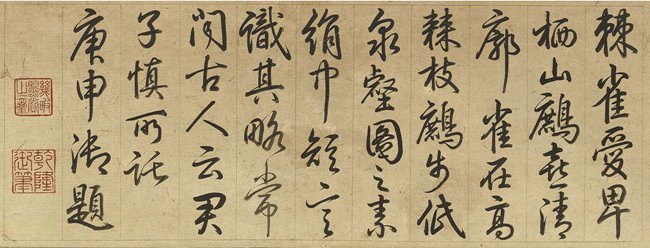 棘雀愛卑
栖山鷓喜清
廓雀在高
棘枝鷓步低
泉壑圖之素
絹中短言
識其略常
聞古人云君
子慎所託
庚申御題
乾隆御筆